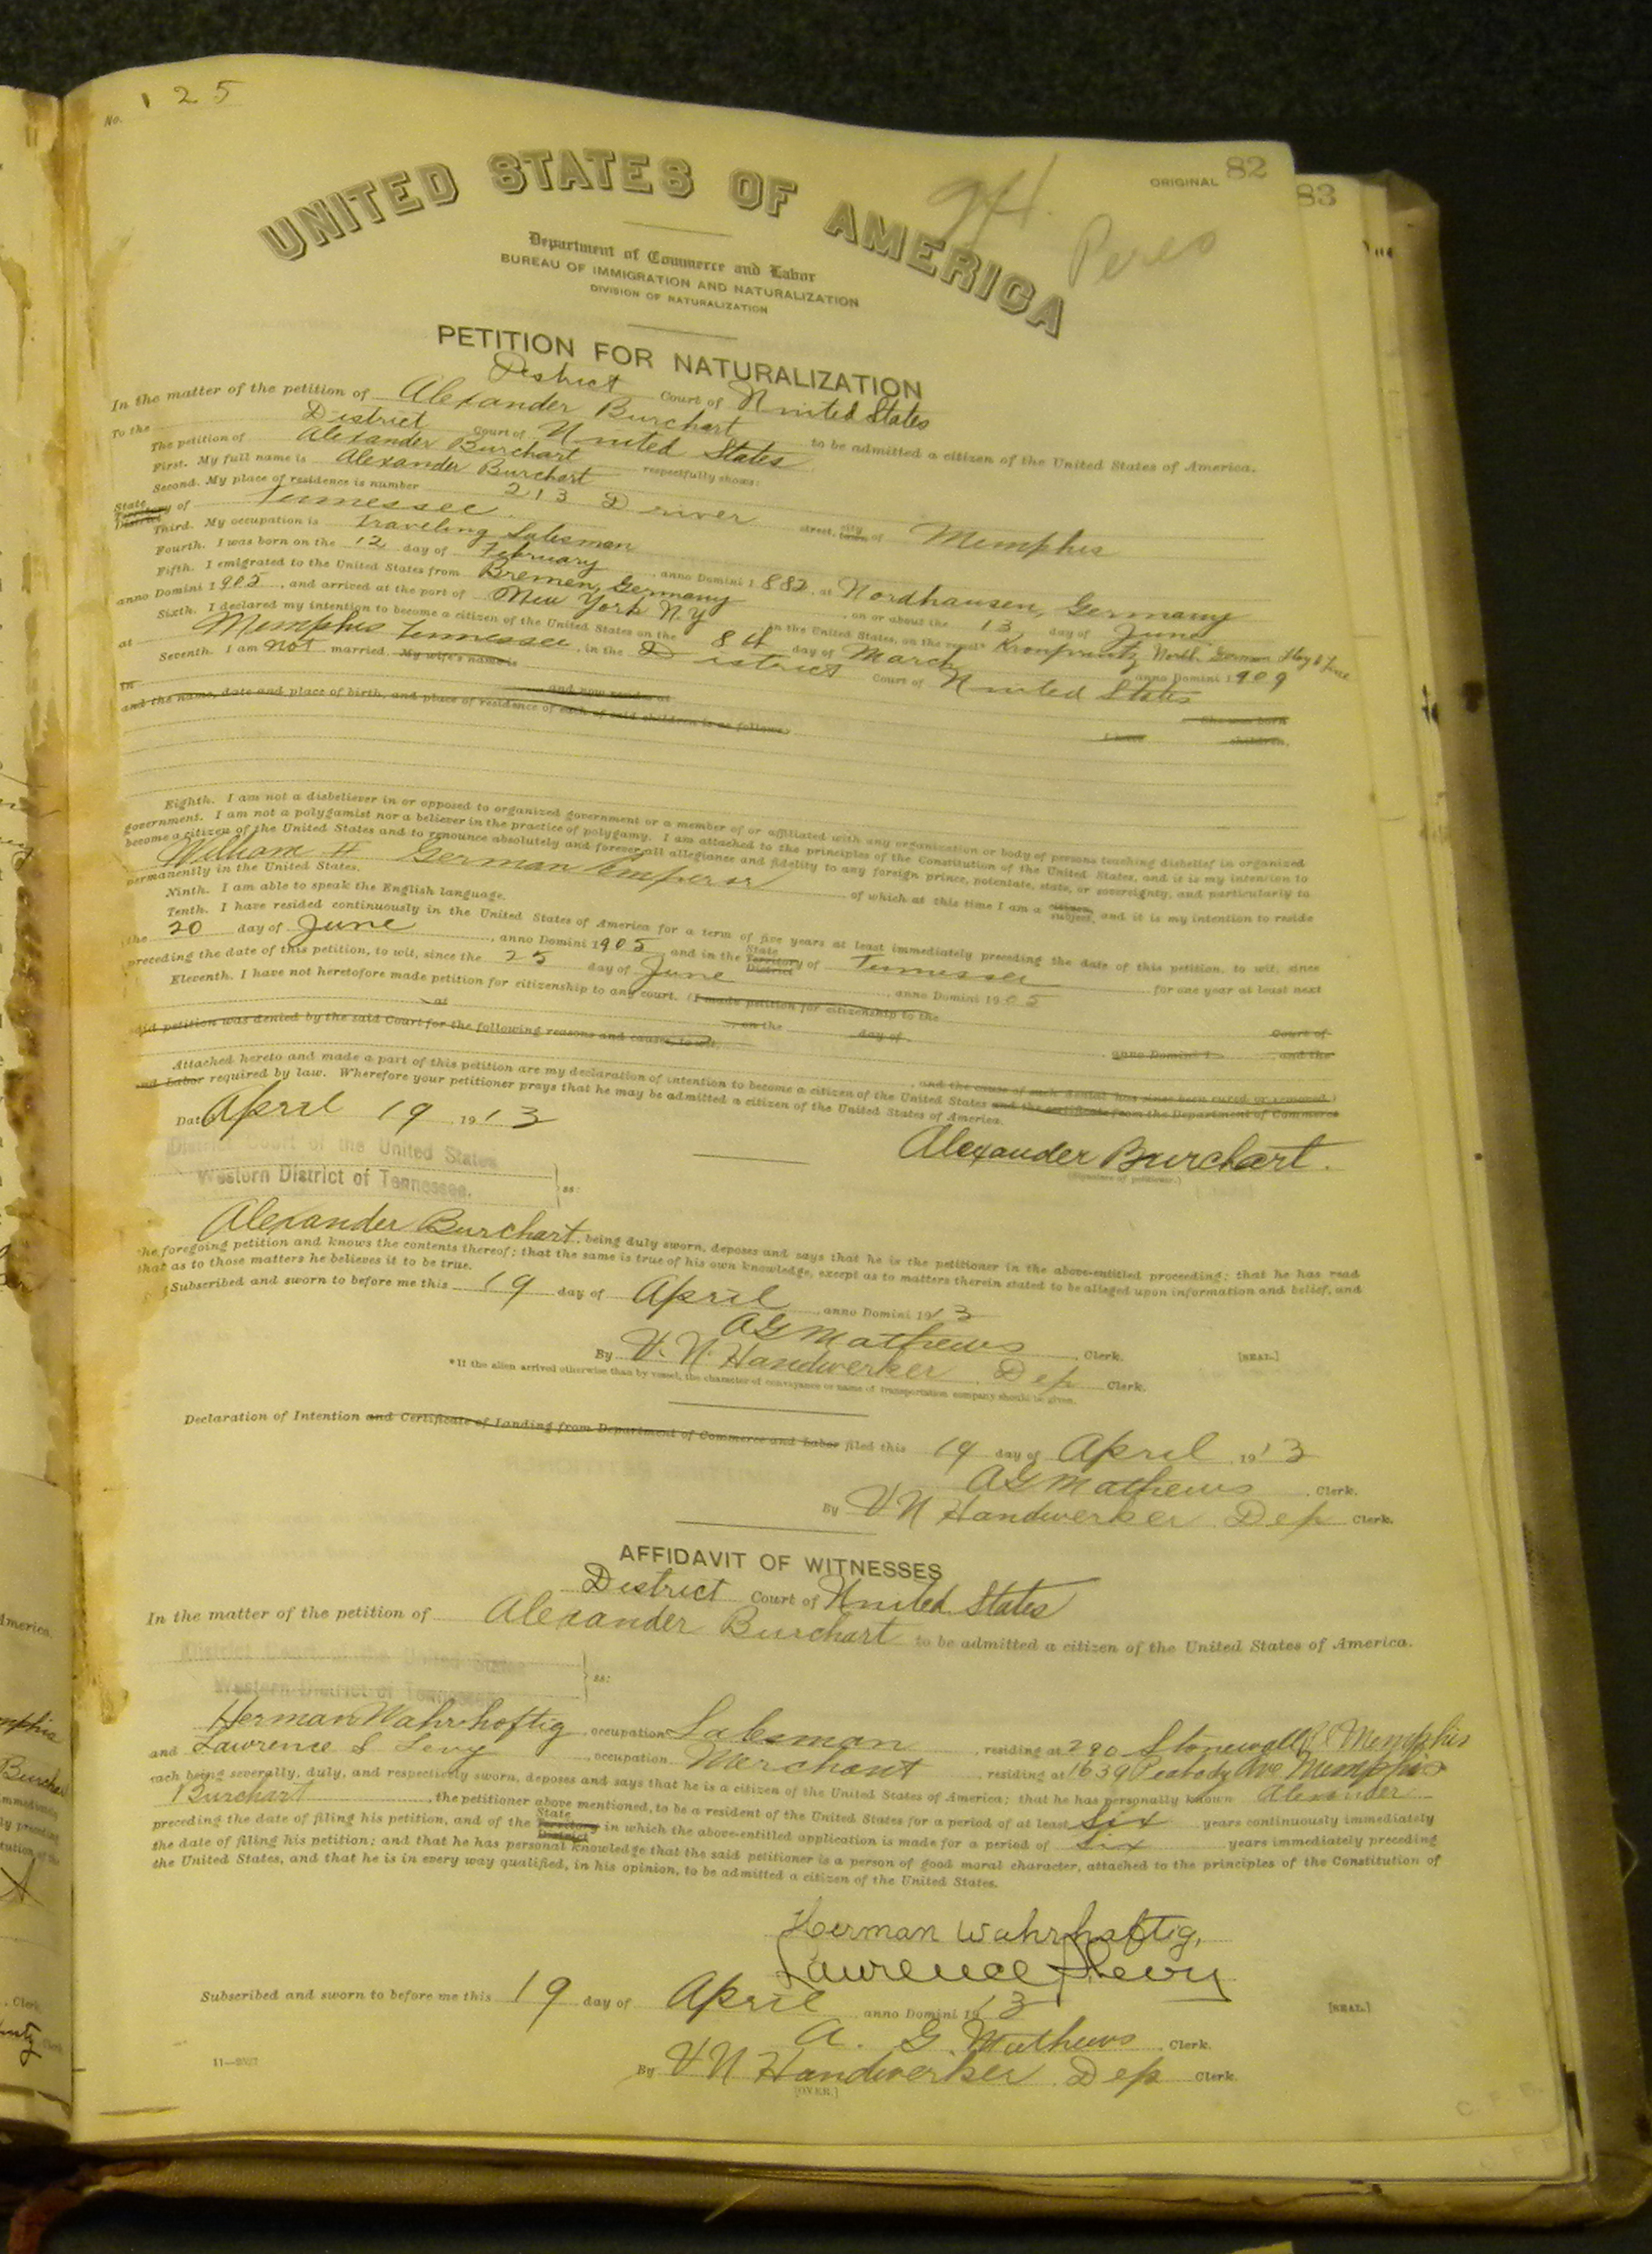 No. 125
ORIGINAL 82
83
Peres
UNITED STATES OF AMERICA
Department of Commerce and Labor
BUREAU OF IMMIGRATION AND NATURALIZATION
DIVISION OF NATURALIZATION
PETITION FOR NATURALIZATION
District Court of United States
In the matter of the petition of Alexander Burchart to be admitted a citizen of the United States of America.
To the District Court of United States
The petition of Alexander Burchart respectfully shows:
First. My full name is Alexander Burchart
Second. My place of residence is number 213 Driver street, city town of Memphis
State Territory District of Tennessee
Third. My occupation is Traveling Salesman
Fourth. I was born on the 12 day of February anno Domini 1882, at Nordhausen, Germany
Fifth. I emigrated to the United States from Bremen, Germany, on or about the 13 day of June
anno Domini 1905, and arrived at the port of New York N.Y in the United States, on the vessel* Kronprintz North German
Sixth. I declared my intention to become a citizen of the United States on the 8th day of March anno Domini 1909
at Memphis Tennessee, in the District Court of United States
Seventh. I am not married. My wife's name is
She was born
in and now resides at
I have children,
and the name, date and place of birth, and place of residence of each of said children is as follows:
Eighth. I am not a disbeliever in or opposed to organized government or a member of or affiliated with any organization or body of persons teaching disbelief in organized
government. I am not a polygamist nor a believer in the practice of polygamy. I am attached to the principles of the Constitution of the United States, and it is my intention to
become a citizen of the United States and to renounce absolutely and forever all allegiance and fidelity to any foreign prince, potentate, state, or sovereignty, and particularly to
William II German Emperor of which at this time I am a citizen subject, and it is my intention to reside
permanently in the United States.
Ninth. I am able to speak the English language.
Tenth. I have resided continuously in the United States of America for a term of five years at least immediately preceding the date of this petition, to wit, since
the 20 day of June, anno Domini 1905 and in the State Territory District of Tennessee for one year at least next
preceding the date of this petition, to wit, since the 25 day of June, anno Domini 1905
Eleventh. I have not heretofore made petition for citizenship to any court. (I made petition for citizenship to the Court of
at on the day of anno Domini 1 and the
said petition was denied by the said Court for the following reasons and causes, to wit,
, and the cause of such denial has since been cured or removed.)
Attached hereto and made a part of this petition are my declaration of intention to become a citizen of the United States and the certificate from the Department of Commerce
and Labor required by law. Wherefore your petitioner prays that he may be admitted a citizen of the United States of America.
Dated April 19, 1913
Alexander Burchart.
(Signature of petitioner.)
District Court of the United States
Western District of Tennessee. ss:
Alexander Burchart, being duly sworn, deposes and says that he is the petitioner in the above-entitled proceeding; that he has read
the foregoing petition and knows the contents thereof; that the same is true of his own knowledge, except as to matters therein stated to be alleged upon information and belief, and
that as to those matters he believes it to be true.
Subscribed and sworn to before me this 19 day of April, anno Domini 1913
AG Mathews, Clerk. [SEAL.]
By V. N. Handwerker Dep Clerk.
*If the alien arrived otherwise than by vessel, the character of conveyance or name of transportation company should be given.
Declaration of Intention and Certificate of Landing from Department of Commerce and Labor filed this 19 day of April, 1913
AG Mathews, Clerk.
By V N Handwerker Dep Clerk.
AFFIDAVIT OF WITNESSES
District Court of United States
In the matter of the petition of Alexander Burchart to be admitted a citizen of the United States of America.
District Court of the United States
Western District of Tennessee ss:
Herman Wahrhoftig, occupation Salesman, residing at 290 Stonewall Pl Memphis
and Lawrence S Levy, occupation Merchant, residing at 1639 Peabody Ave Memphis
each being severally, duly, and respectively sworn, deposes and says that he is a citizen of the United States of America; that he has personally known Alexander
Burchart, the petitioner above mentioned, to be a resident of the United States for a period of at least Six years continuously immediately
preceding the date of filing his petition, and of the State Territory District in which the above-entitled application is made for a period of Six years immediately preceding
the date of filing his petition; and that he has personal knowledge that the said petitioner is a person of good moral character, attached to the principles of the Constitution of
the United States, and that he is in every way qualified, in his opinion, to be admitted a citizen of the United States.
Herman Wahrhaftig,
Lawrence S Levy
Subscribed and sworn to before me this 19 day of April, anno Domini 1913 [SEAL.]
A. G. Mathews, Clerk.
By V N Handwerker Dep Clerk.
[OVER.]